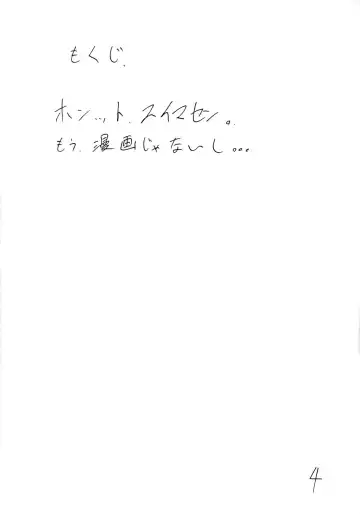 もくじ.
ホンット、スイマセン。
もう、漫画じゃないし...
4